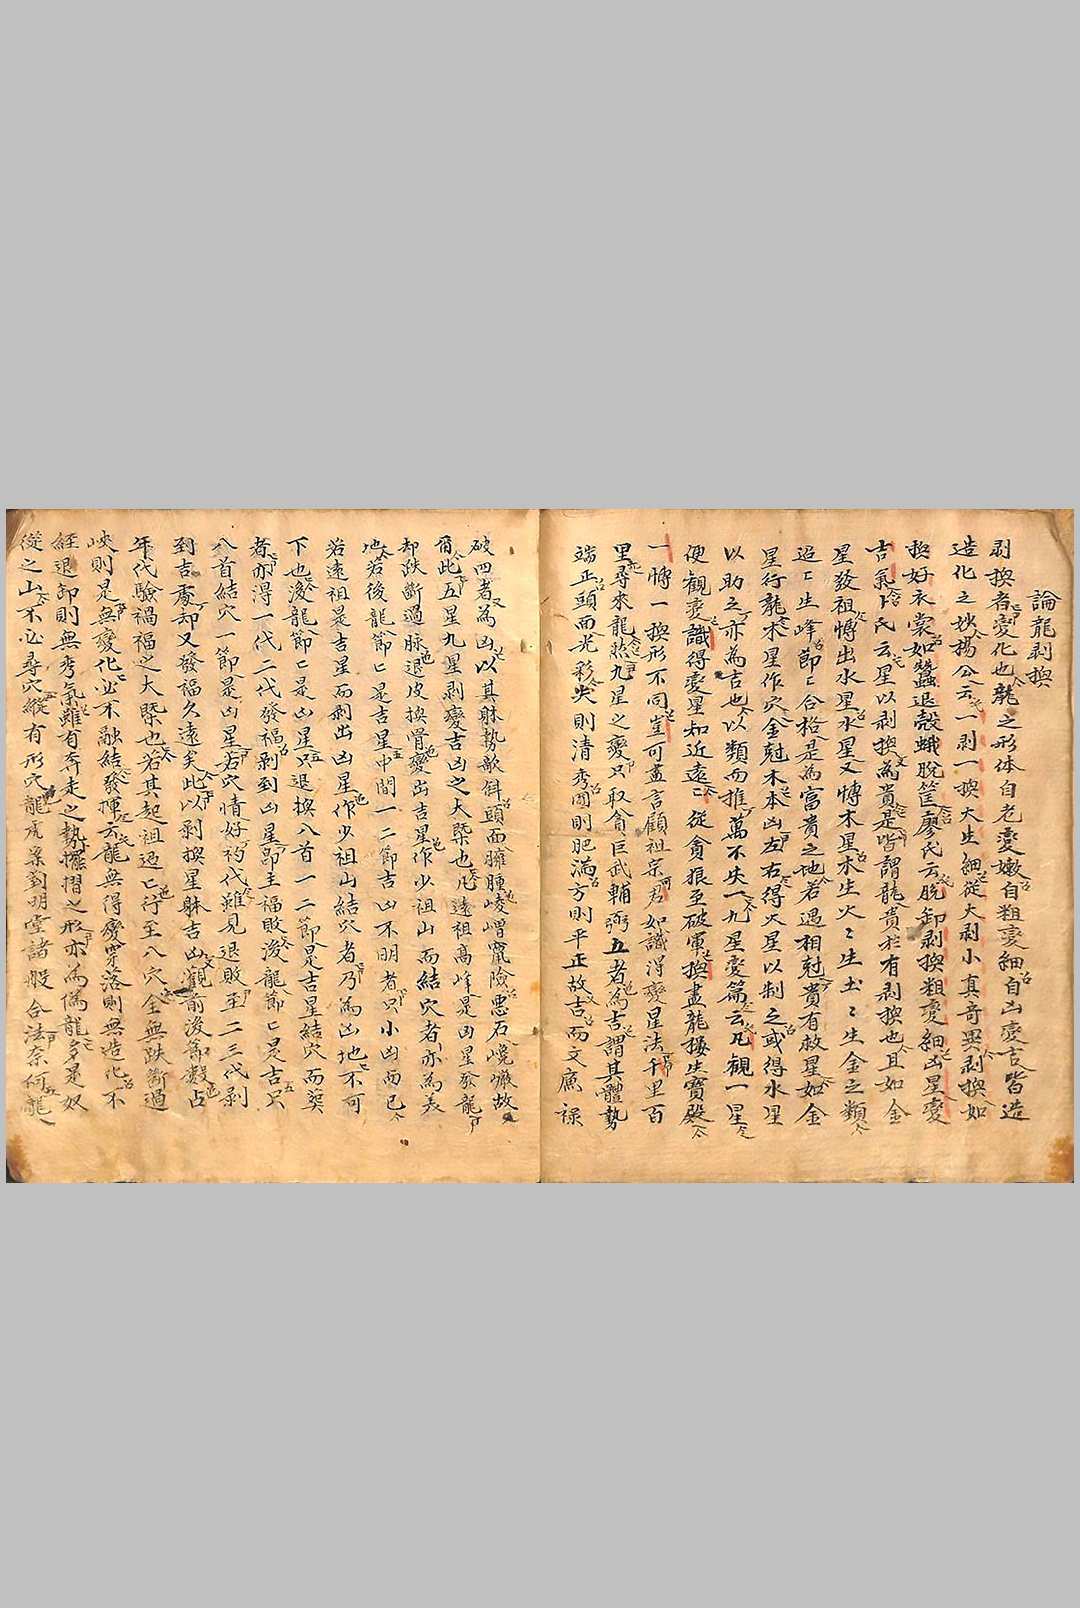 論龍剥換
剥換者變化也龍之形体自老變嫩自粗變細自凶變吉皆造
造化之妙楊公云一剥一換大生細從大剥小真奇異剥換如
換好衣裳如蠶退殼蛾脫筐廖氏云脫卸剥換粗變細凶星變
吉氣卜氏云星以剥換為貴是皆謂龍貴於有剥換也且如金
星發祖愽出水星水星又愽木星木生火〻生土〻生金之類
迢〻生峰節〻合格是為富貴之地若遇相尅貴有救星如金
星行龍木星作穴金尅木本凶左右得火星以制之或得水星
以助之亦為吉也以類而推萬不失一九星變篇云凡觀一星
便觀變識得變星知近遠〻從貪狼至破軍換盡龍樓生寶殿
一愽一換形不同豈可盡言顧祖宗君如識得變星法千里百
里尋來龍然九星之變只取貪巨武輔弼五者為吉謂其體勢
端正頭面光彩尖則清秀圓則肥滿方則平正故吉而文庶祿
破四者為凶以其躰勢欹斜頭面臃腫崚嶒竄險悪石巉巖故
啇此五星九星剥變吉凶之大槩也凡遠祖高峰是凶星發龍
却跌斷過脉退皮換骨變出吉星作少祖山而結穴者亦為美
地若後龍節〻是吉星中間一二節吉凶不明者只小凶而已
若遠祖是吉星而剥出凶星作少祖山結穴者乃為凶地不可
下也後龍節〻是凶星只退換八首一二節是吉星結穴而葬
者亦得一代二代發福剥到凶星即主福敗後龍節〻是吉只
八首結穴一節是凶星若穴情好初代難見退敗至二三代剥
到吉處却又發福久遠矣此以剥換星躰吉凶觀前後節數占
年代驗禍福之大槩也若其起祖迢〻行至八穴全無跌斷過
峽則是無變化必不融結發揮云龍無得脊穿落則無造化不
經退卸則無秀氣雖有奔走之勢擺摺之形亦為偽龍多是奴
從之山不必尋穴縱有形穴龍虎案對明堂諸般合法奈何龍